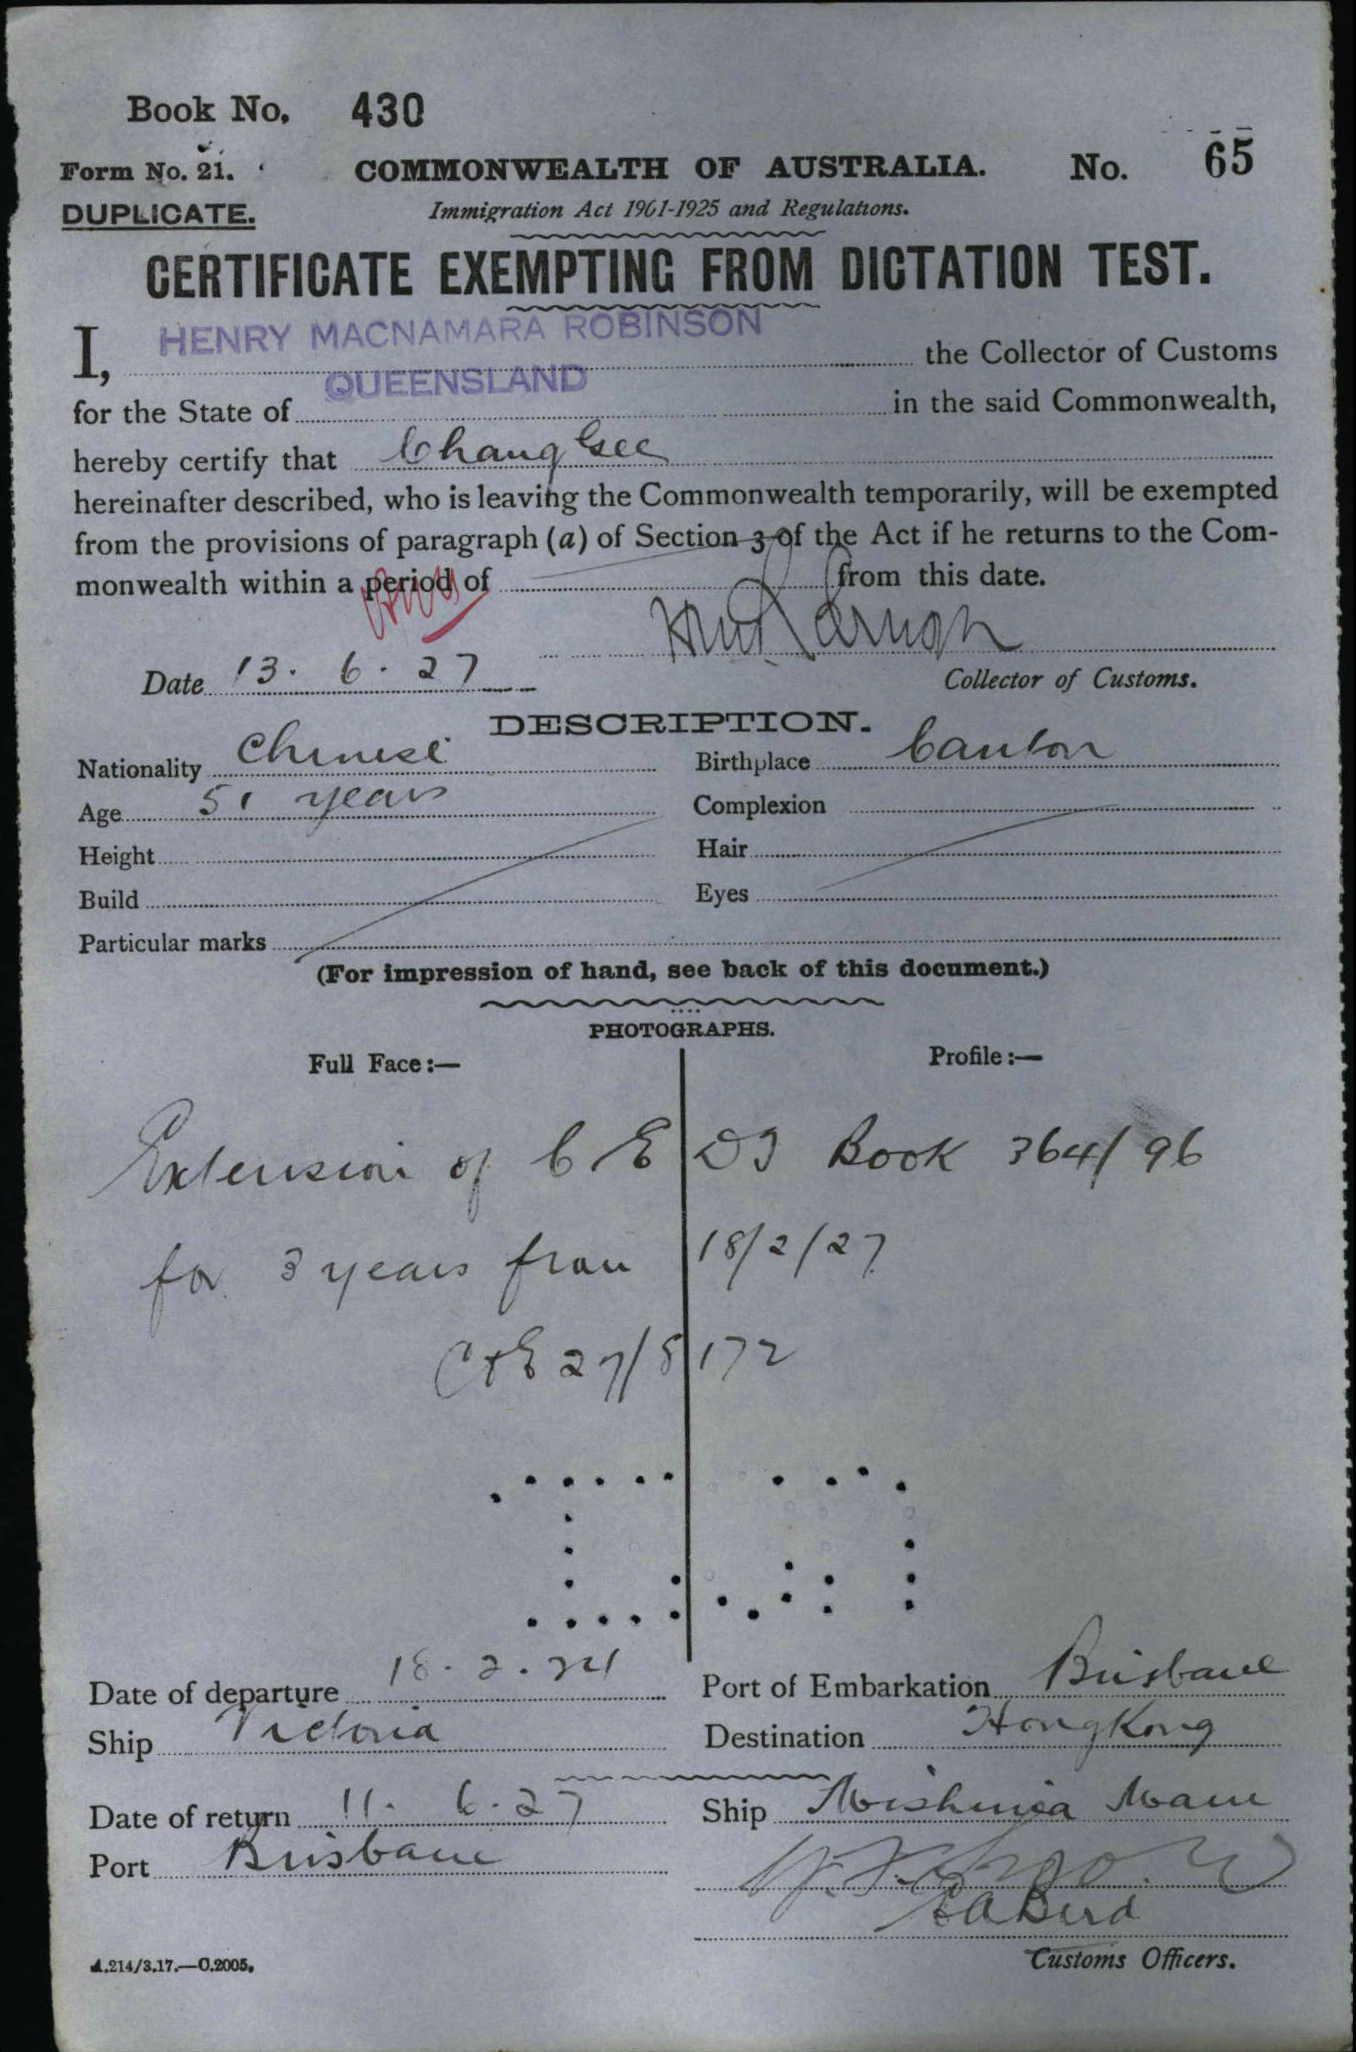 Book No. 430
Form No. 21. COMMONWEALTH OF AUSTRALIA. No. 65
DUPLICATE. Immigration Act 1901-1925 and Regulations.
CERTIFICATE EXEMPTING FROM DICTATION TEST.
I, HENRY MACNAMARA ROBINSON the Collector of Customs
for the State of QUEENSLAND in the said Commonwealth,
hereby certify that Chang Gee
hereinafter described, who is leaving the Commonwealth temporarily, will be exempted
from the provisions of paragraph (a) of Section 3 of the Act if he returns to the Com-
monwealth within a period of from this date.
Date 13. 6. 27
Collector of Customs.
DESCRIPTION.
Nationality Chinese Birthplace Canton
Age 51 years Complexion
Height Hair
Build Eyes
Particular marks
(For impression of hand, see back of this document.)
PHOTOGRAPHS.
Full Face:— Profile:—
Extension of C E D T Book 364/96
for 3 years from 18/2/27
C & E 27/8172
Date of departure 18. 2. 24 Port of Embarkation Brisbane
Ship Victoria Destination HongKong
Date of return 11. 6. 27 Ship Maru
Port Brisbane
E A Bird
Customs Officers.
A.214/3.17.—C.2005.